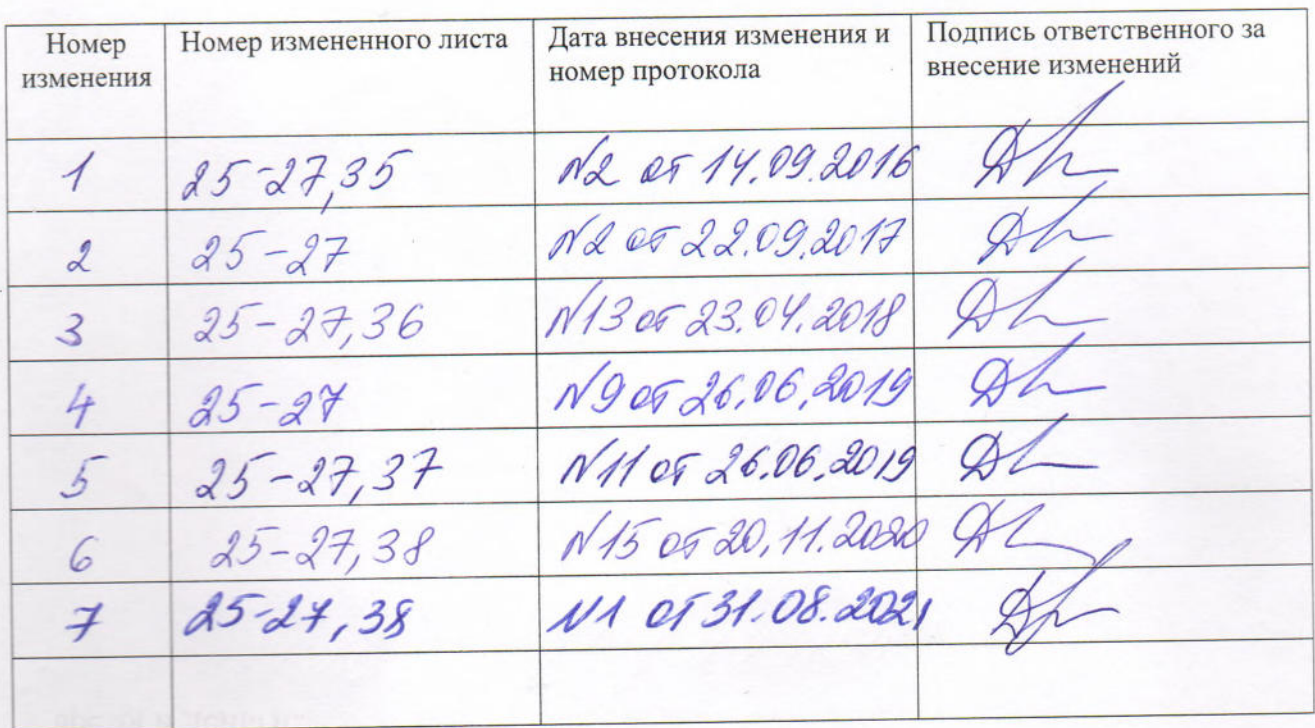 Номер изменения Номер измененного листа Дата внесения изменения и номер протокола Подпись ответственного за внесение изменений
1 25-27,35 №2 от 14.09.2016
2 25-27 №2 от 22.09.2017
3 25-27,36 №13 от 23.04.2018
4 25-27 №9 от 26.06.2019
5 25-27,37 №11 от 26.06.2019
6 25-27,38 №15 от 20.11.2020
7 25-27,38 №1 от 31.08.2021